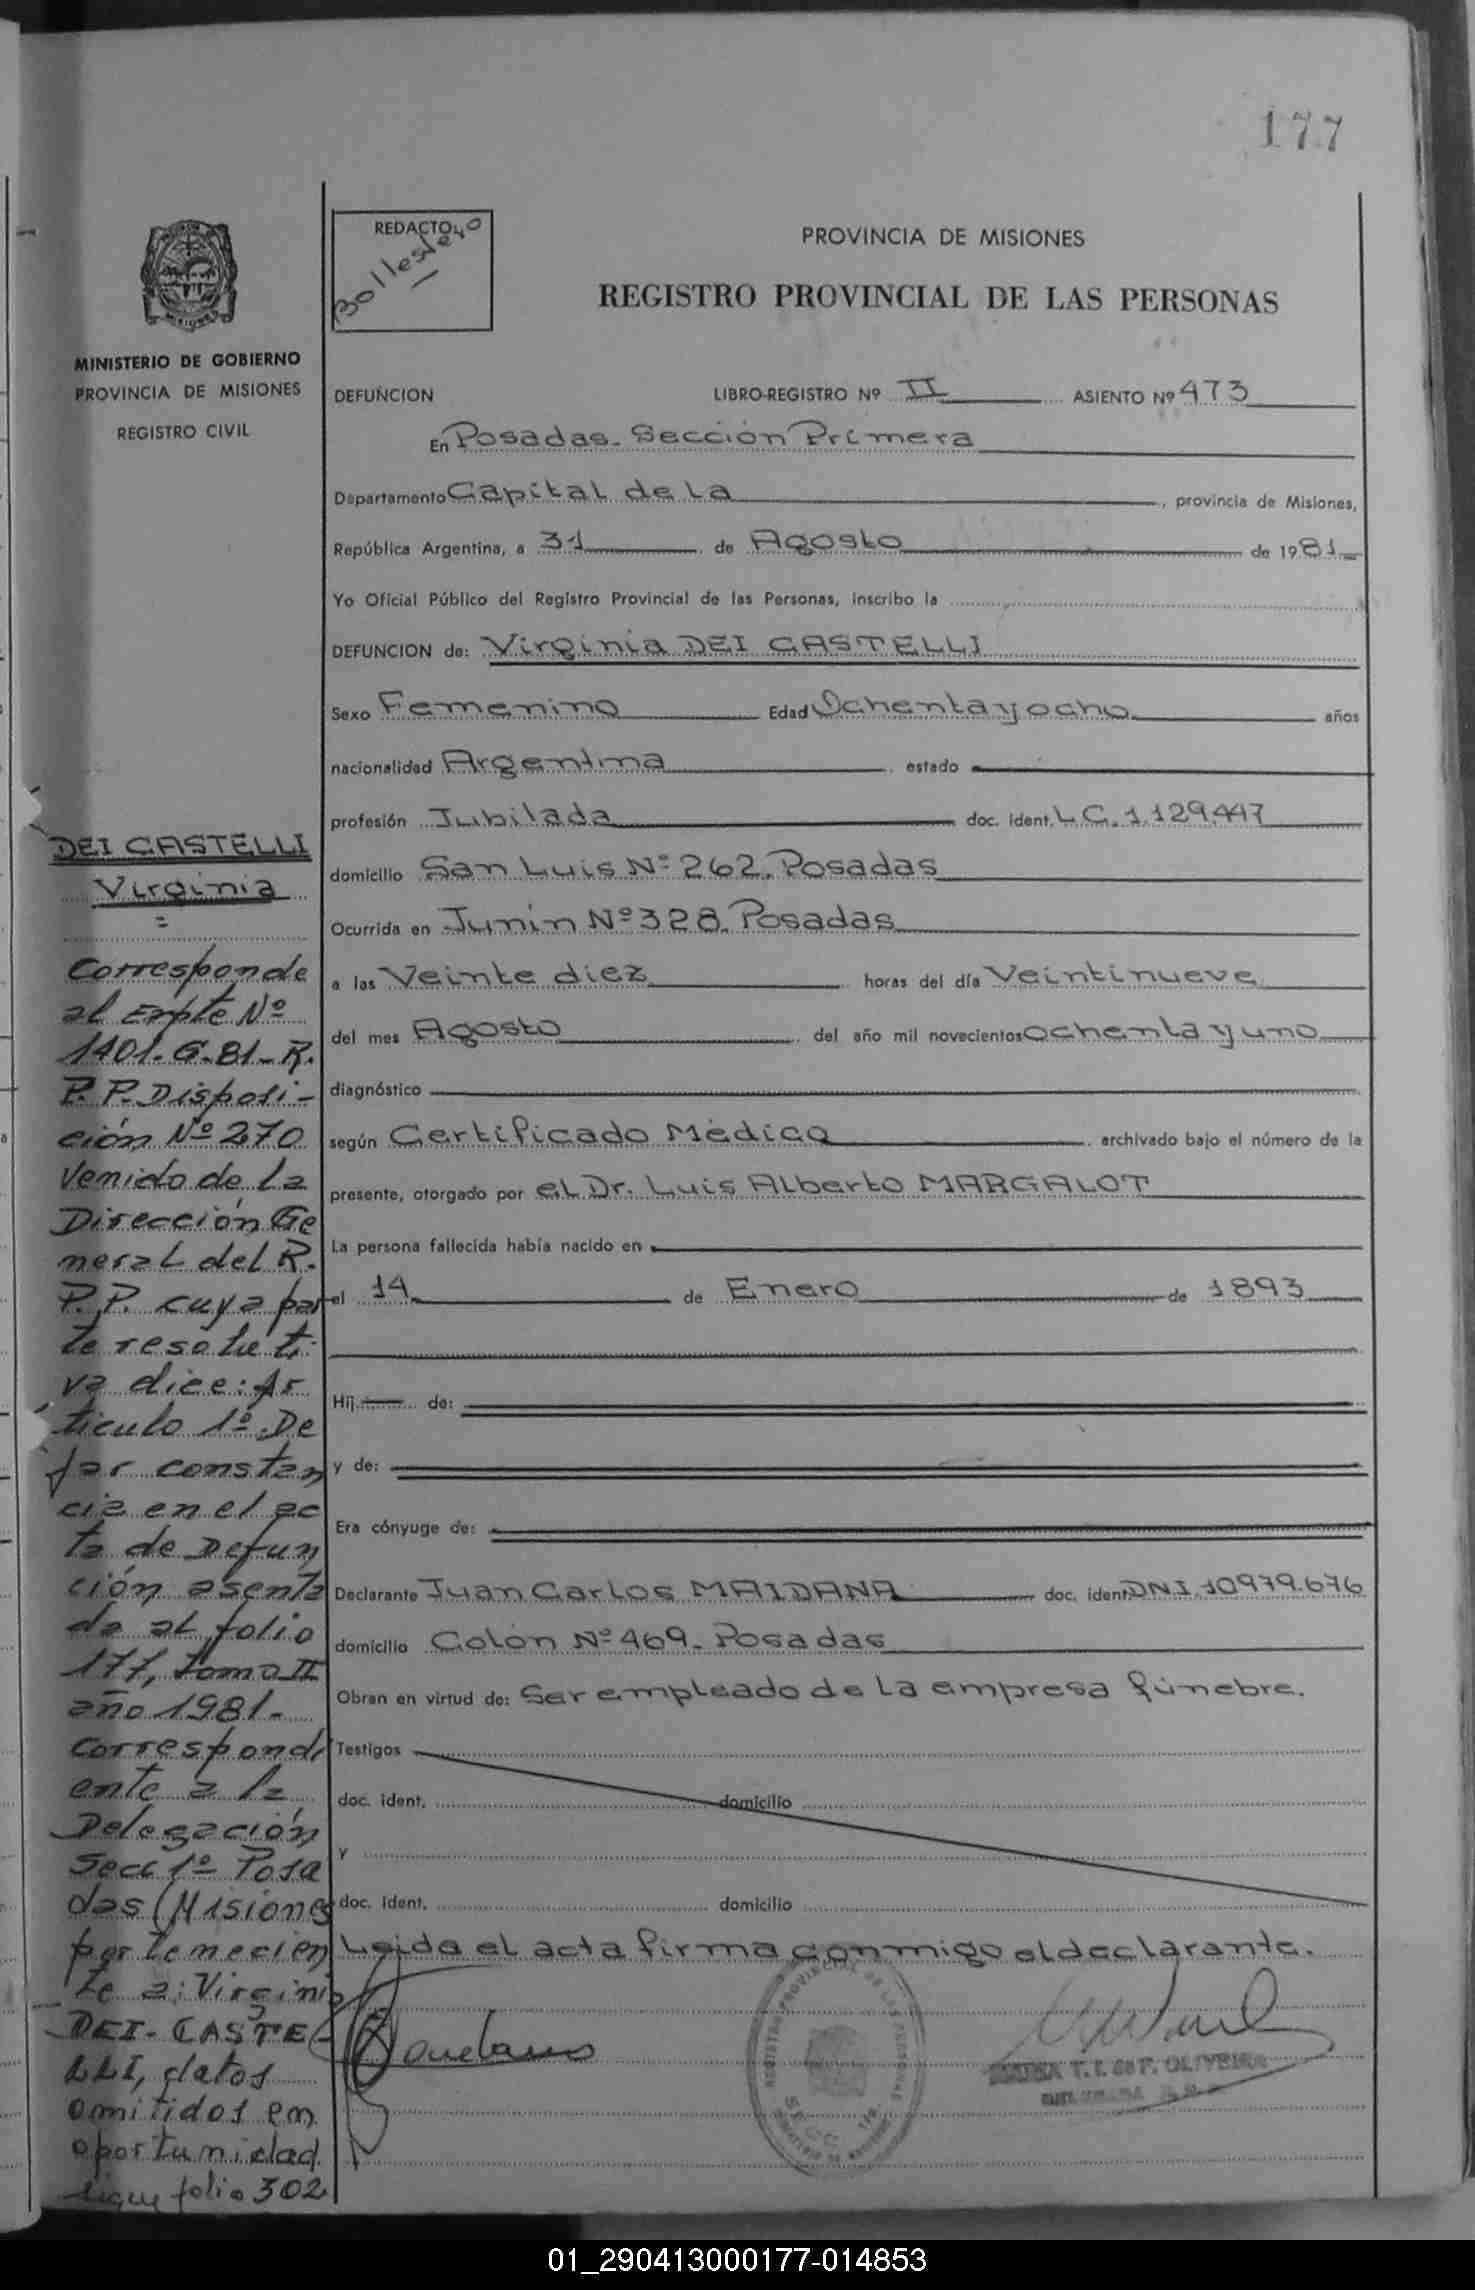 177
MINISTERIO DE GOBIERNO
PROVINCIA DE MISIONES
REGISTRO CIVIL
REDACTO
PROVINCIA DE MISIONES
REGISTRO PROVINCIAL DE LAS PERSONAS
DEFUNCION LIBRO-REGISTRO Nº II ASIENTO Nº 473
En Posadas. Sección Primera
Departamento Capital de La, provincia de Misiones,
República Argentina, a 31 de Agosto de 1981
Yo Oficial Público del Registro Provincial de las Personas, inscribo la
DEFUNCION de: Virginia DEI CASTELLI
Sexo Femenino Edad Ochenta y ocho años
nacionalidad Argentina estado
profesión Jubilada doc. ident. L.C. 1.129.447
domicilio San Luis Nº 262. Posadas
Ocurrida en Junin Nº 328. Posadas
a las Veinte diez horas del día Veintinueve
del mes Agosto del año mil novecientos ochenta y uno
diagnóstico
según Certificado Médico archivado bajo el número de la
presente, otorgado por el Dr. Luis Alberto MARGALOT
La persona fallecida había nacido en
el 14 de Enero de 1893
Hij de:
y de:
Era cónyuge de:
Declarante Juan Carlos MAIDANA doc. ident. DNI. 10979.676
domicilio Colón Nº 469. Posadas
Obran en virtud de: Ser empleado de la empresa fúnebre.
Testigos
doc. ident. domicilio
y
doc. ident. domicilio
Leida el acta firma conmigo el declarante.
T. I. de F. OLIVEIRA
DEI CASTELLI
Virginia
=
Corresponde
al Expte Nº
1401-G-81-R.
P.P. Disposi-
ción Nº 270
Venido de la
Dirección Ge
neral del R.
P.P. cuya par
te resoluti
va dice: Ar
ticulo 1º: De
jar constan
cia en el ac
ta de Defun
ción asenta
da al folio
177, Tomo II
año 1981-
Correspondi
ente a la
Delegación
Secc 1º Posa
das (Misiones
pertenecien
te a: Virginia
DEI-CASTE
LLI, datos
omitidos en
oportunidad.
sigue folio 302
01_290413000177-014853